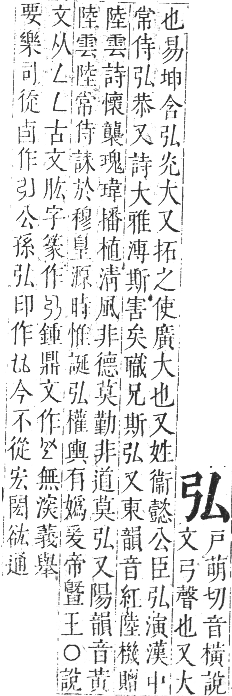 弘
戸萌切音橫說
文弓聲也又大
也易坤含弘炗大又拓之使廣大也又姓衞懿公臣弘演漢中
常侍弘恭又詩大雅溥斯害矣職兄斯弘又東韻音紅陸機贈
陸雲詩懷襲瑰瑋播植淸風非德莫勤非道莫弘又陽韻音黃
陸雲陸常侍誄於穆皇源時惟誕弘權輿有嬀爰帝曁王○說
文从厶厶古文肱字篆作鍾鼎文作無深義舉
要樂司從卣作公孫弘印作今不從宏閎紘通